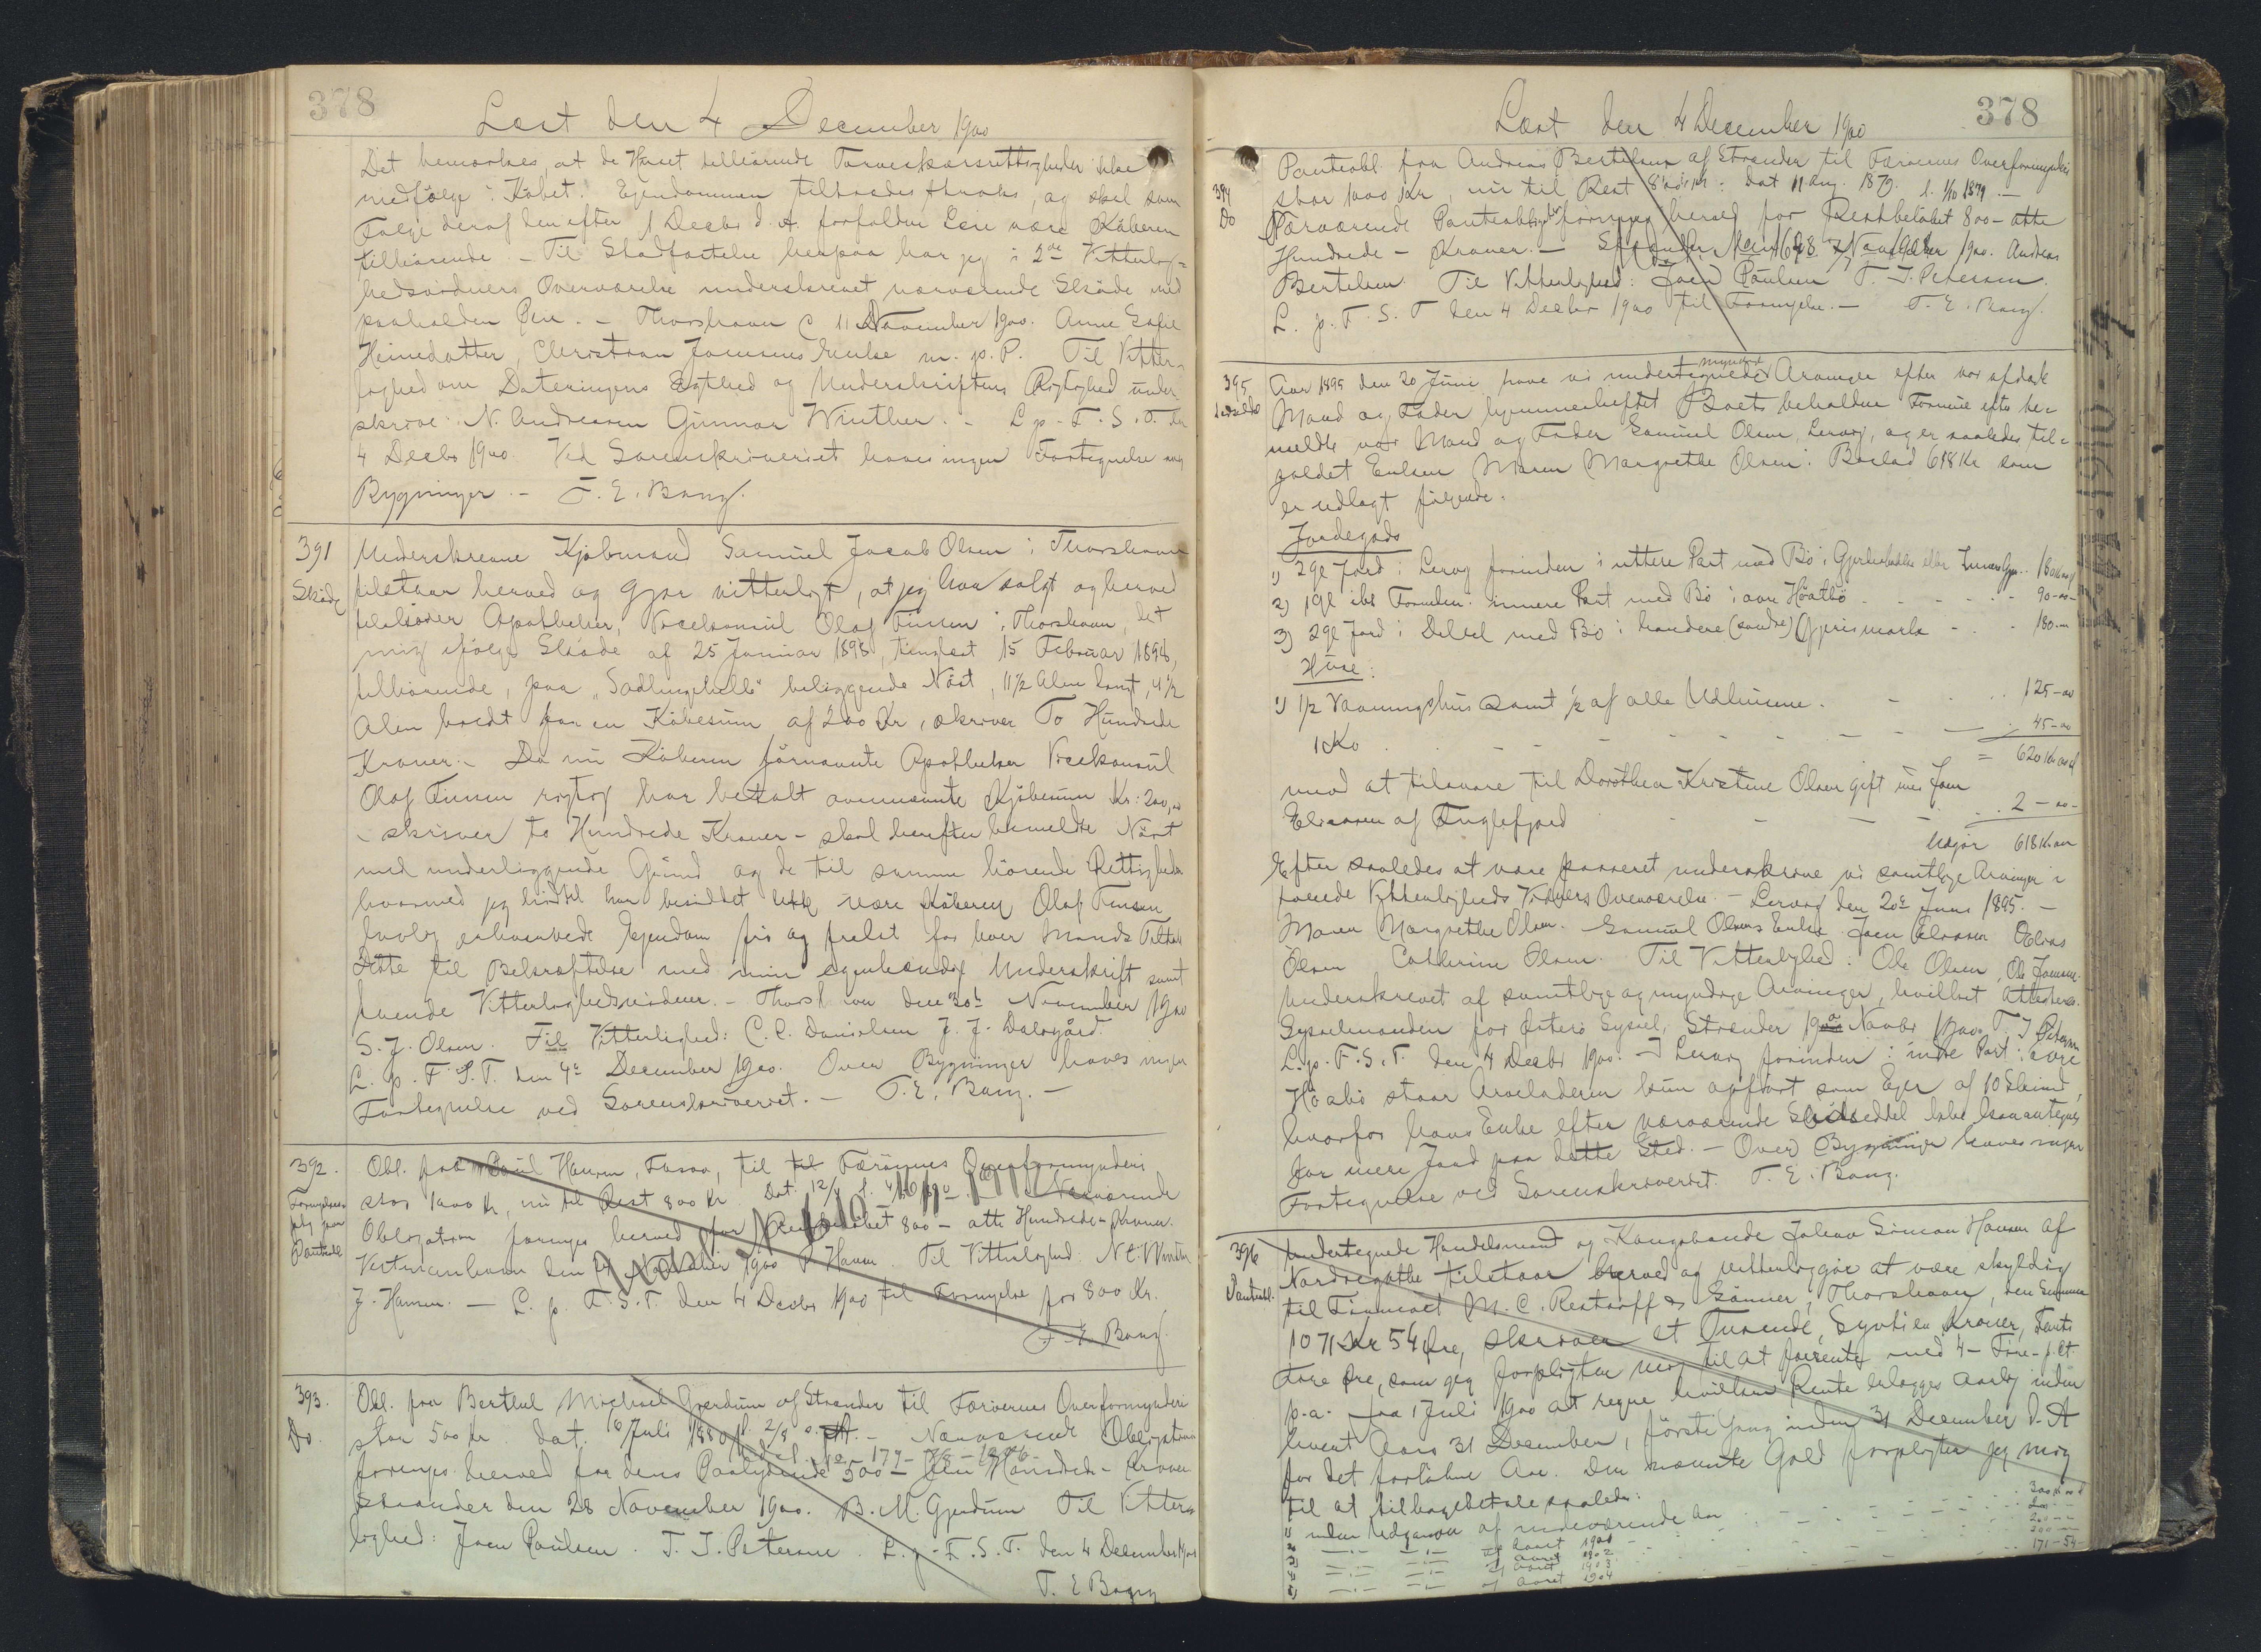 378
Læst den 4 December 1900
Det bemærkes, at de Huset tilhörende Torveskærsrettigheder ikke
medfölge i Köbet. Ejendommen tiltrædes straks, og skal som
Fölge deraf den efter 1 Decbr d. A. forfaldne Leie være Köberen
tilhörende. – Til Stadfæstelse herpaa har jeg i 2de Vitterlig=
hedsvidners Overværelse underskrevet nærværende Sköde med
paaholden Pen. – Thorshavn d 11 November 1900. Anne Sofie
Heinedatter, Christian Joensens Enke m. p. P. Til Vitter=
lighed om Dateringens Ægthed og Underskriftens Rigtighed under
skrive: N. Andreasen Gunnar Winther. – L. p. F. S. T. den
4 Decbr 1900. Ved Sorenskriveriet haves ingen Fortegnelse over
Bygninger. – T. E. Bang.
391
Sköde
Underskrevne Kjöbmand Samuel Jacob Olsen i Thorshavn
tilstaar herved og gjör vitterligt, at jeg har solgt og herved
tilskjöder Apotheker, Vicekonsul Olaf Finsen i Thorshavn, det
mig ifölge Sköde af 25 Januar 1898, tinglæst 15 Februar 1898,
tilhörende, paa "Sadlingehelle" beliggende Nöst, 11½ Alen langt, 4½
Alen bredt for en Köbesum af 200 Kr, skriver To Hundrede
Kroner. – Da nu Köberen förnævnte Apotheker Vicekonsul
Olaf Finsen rigtig har betalt ovennævnte Kjöbesum Kr: 200,00
– skriver to Hundrede Kroner – skal herefter bemeldte Nöst
med underliggende Grund og de til samme hörende Rettigheder
hvormed jeg hidtil har besiddet det være Köberen Olaf Finsen
lovlig erhvervede Ejendom fri og frelst for hver Mands Tiltale
Dette til Bekræftelse med min egenhændig Underskrift samt
hosföiede Vitterlighedsvidner. – Thorshavn den 30te November 1900
S. J. Olsen. Til Vitterlighed: C. C. Danielsen J. J. Dalsgård.
L. p. F. S. T. den 4de December 1900. Over Bygninger haves ingen
Fortegnelse ved Sorenskriveriet. – T. E. Bang. –
392.
Fornyelses
paa
Pantobl
Obl. fra Poul Hansen, Famien, til Færöernes Overformynderi
stor 1000 Kr, nu til Rest 800 Kr Dat. 12/ Nærværende
Obligation fornyes herved for Restbelöbet 800 – otte Hundrede – Kroner.
Vestmanhavn den November 1900 P Hansen. Til Vitterlighed N. C. Winther
J. Hansen. – L. p. F. S. T. den 4 Decbr 1900 til Fornyelse for 800 Kr.
T. E. Bang.
393.
Do.
Obl. fra Berthel Michael Gjerdum af Strænder til Færöernes Overformynderi
stor 500 Kr dat. 10 Juli 1880 l. 2/8 s. A. – Nærværende Obligation
fornyes herved for dens Paalydende 500 – Fem Hundrede – Kroner
Strænder den 28 November 1900. B. M. Gjerdum Til Vitter=
lighed: Joen Poulsen. T. J. Petersen. L. p. F. S. T. den 4 December 1900
T. E Bang
Læst den 4 December 1900
378
394
Do
Pantobl. fra Andreas Bertelsen af Strænder til Færöernes Overformynderi
stor 1000 Kr nu til Rest 800 Kr. dat 11 Aug. 1879. l. 1/10 1879. –
Nærværende Pantobligation fornyes herved for Restbelöbet 800 – otte
Hundrede – Kroner. – Strænder November 1900. Andreas
Bertelsen. Til Vitterlighed: Joen Poulsen T. J. Petersen.
L. p. F. S. T den 4 Decbr 1900 til Fornyelse. – T. E. Bang.
395
Aar 1895 den 20 Juni have vi undertegnede myndige Arvinger efter vor afdöde
Mand og Fader hjemmeskiftet Boets beholdne Formue efter be=
meldte vor Mand og Fader Samuel Olsen, Lervig, og er saaledes til=
faldet Enken Maren Margrethe Olsen i Boslod 618 Kr som
er udlagt fölgende:
Jordegods
1) 2 gl Jord i Lervig forinden i uttere Part med Bö i eller 180 Kr
2) 1 gl ibd Forinden innere Part med Bö i avre Höabö 90 – 00 –
3) 2 gl Jord i Delvel med Bö i (söndre) Gjerismark 180 –
Huse:
1) 1/2 Vaaningshus samt 1/2 af alle Udhusene. 125 – 00
1 Ko 45 – 00
= 620 Kr
med at tilsvare til Dorothea Kristine Olsen gift med Joen
Eliassen af Fuglefjord 2 – 00 –
Udgör 618 Kr
Efter saaledes at være passeret underskrive vi samtlige Arvinger i
föiede Vitterligheds Vidners Overværelse. – Lervig den 20de Juni 1895. –
Maren Margrethe Olsen. Samuel Olsens Enke Joen Eliassen Elias
Olsen Catherine Olsen. Til Vitterlighed: Ole Olsen, Ole Joensen.
Underskrevet af samtlige og myndige Arvinger, hvilket attesteres.
Sysselmanden for Österö Syssel, Strænder 19de Novbr 1900. T. J Petersen
L. p. F. S. T. den 4 Decbr 1900. I Lervig forinden i indre Part i avre
Höabö staar Arveladeren kun opfört som Ejer af 10 Skind,
hvorfor hans Enke efter nærværende Skifteseddel ikke kan antegnes
for mere Jord paa dette Sted. – Over Bygninger haves ingen
Fortegnelse ved Sorenskriveriet. T. E. Bang.
396
Pantobl.
Undertegnede Handelsmand og Kongsbonde Johan Simon Hansen af
Nordregöthe tilstaar herved og vitterliggör at være skyldig
til Firmaet M. C. Restorff & Sönner, Thorshavn, den Summa
1071 Kr 54 Öre, skriver et Tusende, Syvti en Kroner, femti
Fire Öre, som jeg forpligter mig til at forrente med 4 – Fire – pCt.
p. a. fra 1 Juli 1900 at regne hvilken Rente erlægges aarlig inden
hvert Aars 31 December, förste Gang inden 31 December d. A
for det forlöbne Aar. Den nævnte Gæld forpligter jeg mig
til at tilbagebetale saaledes:
1) inden Udgangen af indeværende Aar 300 Kr
2) – " – – " – af Aaret 1901 200 –
3) – " – – " – af Aaret 1902 200 –
4) – " – – " – af Aaret 1903 200 –
5) – " – – " – af Aaret 1904 171 – 54 –